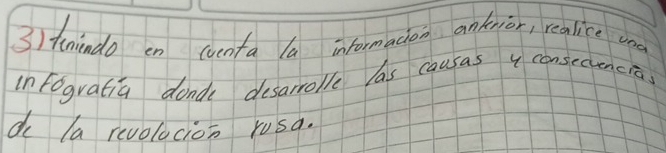 3) teniendo en cuenta la información anterior, realice una
infografía donde desarrolle las causas y consecuencias
de la revolución rusa.